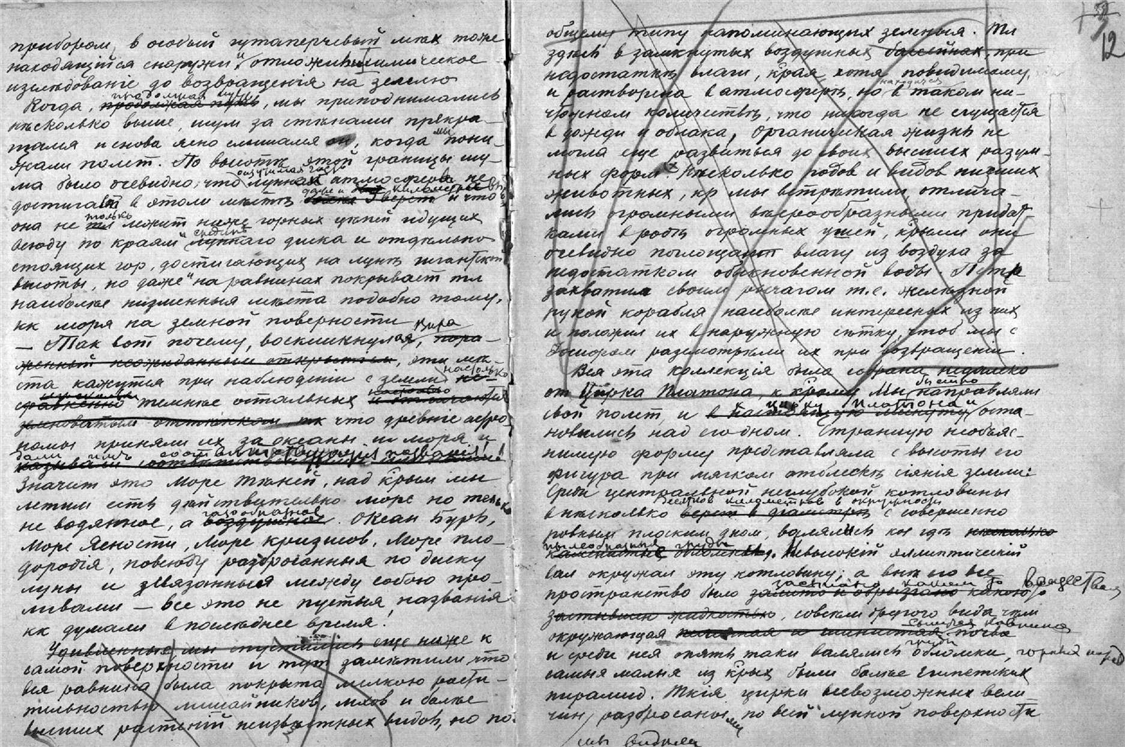 прибором, в особый гутаперчевый мех тоже
находящийся снаружи и отложил химическое
изследованіе до возвращенія на землю
Когда, продолжая путь, мы приподнимались
нѣсколько выше, шум за стѣнами прекра-
тился и снова ясно слышался он, когда мы пони-
жали полет. По высотѣ этой границы шу-
разрѣженная
ма было очевидно, что лунная атмосфера не
достигала в этом мѣстѣ километров и что
только
она не лежит ниже горных цѣпей идущих
всюду по краям луннаго диска и отдѣльно
стоящих гор, достигающих на лунѣ гигантской
высоты, но даже на равнинах покрывает тѣ
наиболѣе низменныя мѣста подобно тому,
кк моря на земной поверхности
— Так вот почему, воскликнула Вѣра, пора-
женный неожиданным открытіем, эти мѣ-
ста кажутся при наблюденіи с земли настолько
темнѣе остальных
что древніе астро-
номы приняли их за океаны и моря и
называли соответствующія названія!
Значит это Море Тѣней, над крым мы
летим есть дѣйствительно море но только
газообразное
не водяное, а воздушное. Океан Бурь,
Море Ясности, Море кризисов, Море пло-
дородія, повсюду разбросанныя по диску
луны и связанныя между собою про-
ливами — все это не пустыя названія
кк думали в последнее время.
Удивленные мы спустились еще ниже к
самой поверхности и тут замѣтили, что
вся равнина была покрыта мелкою расти-
тельностью лишайников, мхов и болѣе
высших растеній неизвѣстных видов, но по
12
общему типу напоминающих земныя. Тѣ
здѣсь в замкнутых воздушных бассейнах при
недостаткѣ влаги, края хотя повидимому,
и растворена в атмосферѣ, но в таком ни-
чтожном количествѣ, что никогда не сгущается
в дожди и облака, органическая жизнь не
могла еще развиться до своих высших разум-
ных форм. Нѣсколько родов и видов низших
животных, кр мы встрѣтили отлича-
лись огромными вѣерообразными придат-
ками в родѣ огромных ушей, крыми они
очевидно поглощают влагу из воздуха за
недостатком обыкновенной воды
захватил своим рычагом т.е. желѣзной
рукой корабля, наиболѣе интересных из них
и положил их в наружную сѣтку, чтоб мы с
разсмотрѣли их при возвращеніи.
Вся эта коллекція была собрана недалеко
быстро
от Цирка Платона к крому Мы направляли
цирку Платона и
свой полет, и в настоящую минуту оста-
новились над его дном. Странную необъяс-
нимую форму представляла с высоты его
фигура при мягком отблескѣ сіянія земли:
Среди центральной неглубокой котловины
десятков километров в окружности
в нѣсколько верст в діаметрѣ с совершенно
ровным плоским дном, валялись кое гдѣ нѣсколько
обломки. Невысокій эллиптический
вал окружал эту котловину; а внѣ его все
пространство было какою-то
застывшею жидкостью, совсѣм другого вида чѣм
окружающая почва
и среди нея опять таки валялись обломки, горныя
самыя малыя из крых были болѣе египетских
пирамид. Такія цирки всевозможных вели-
чин, разбросаны по всей лунной поверхности
мы видѣли